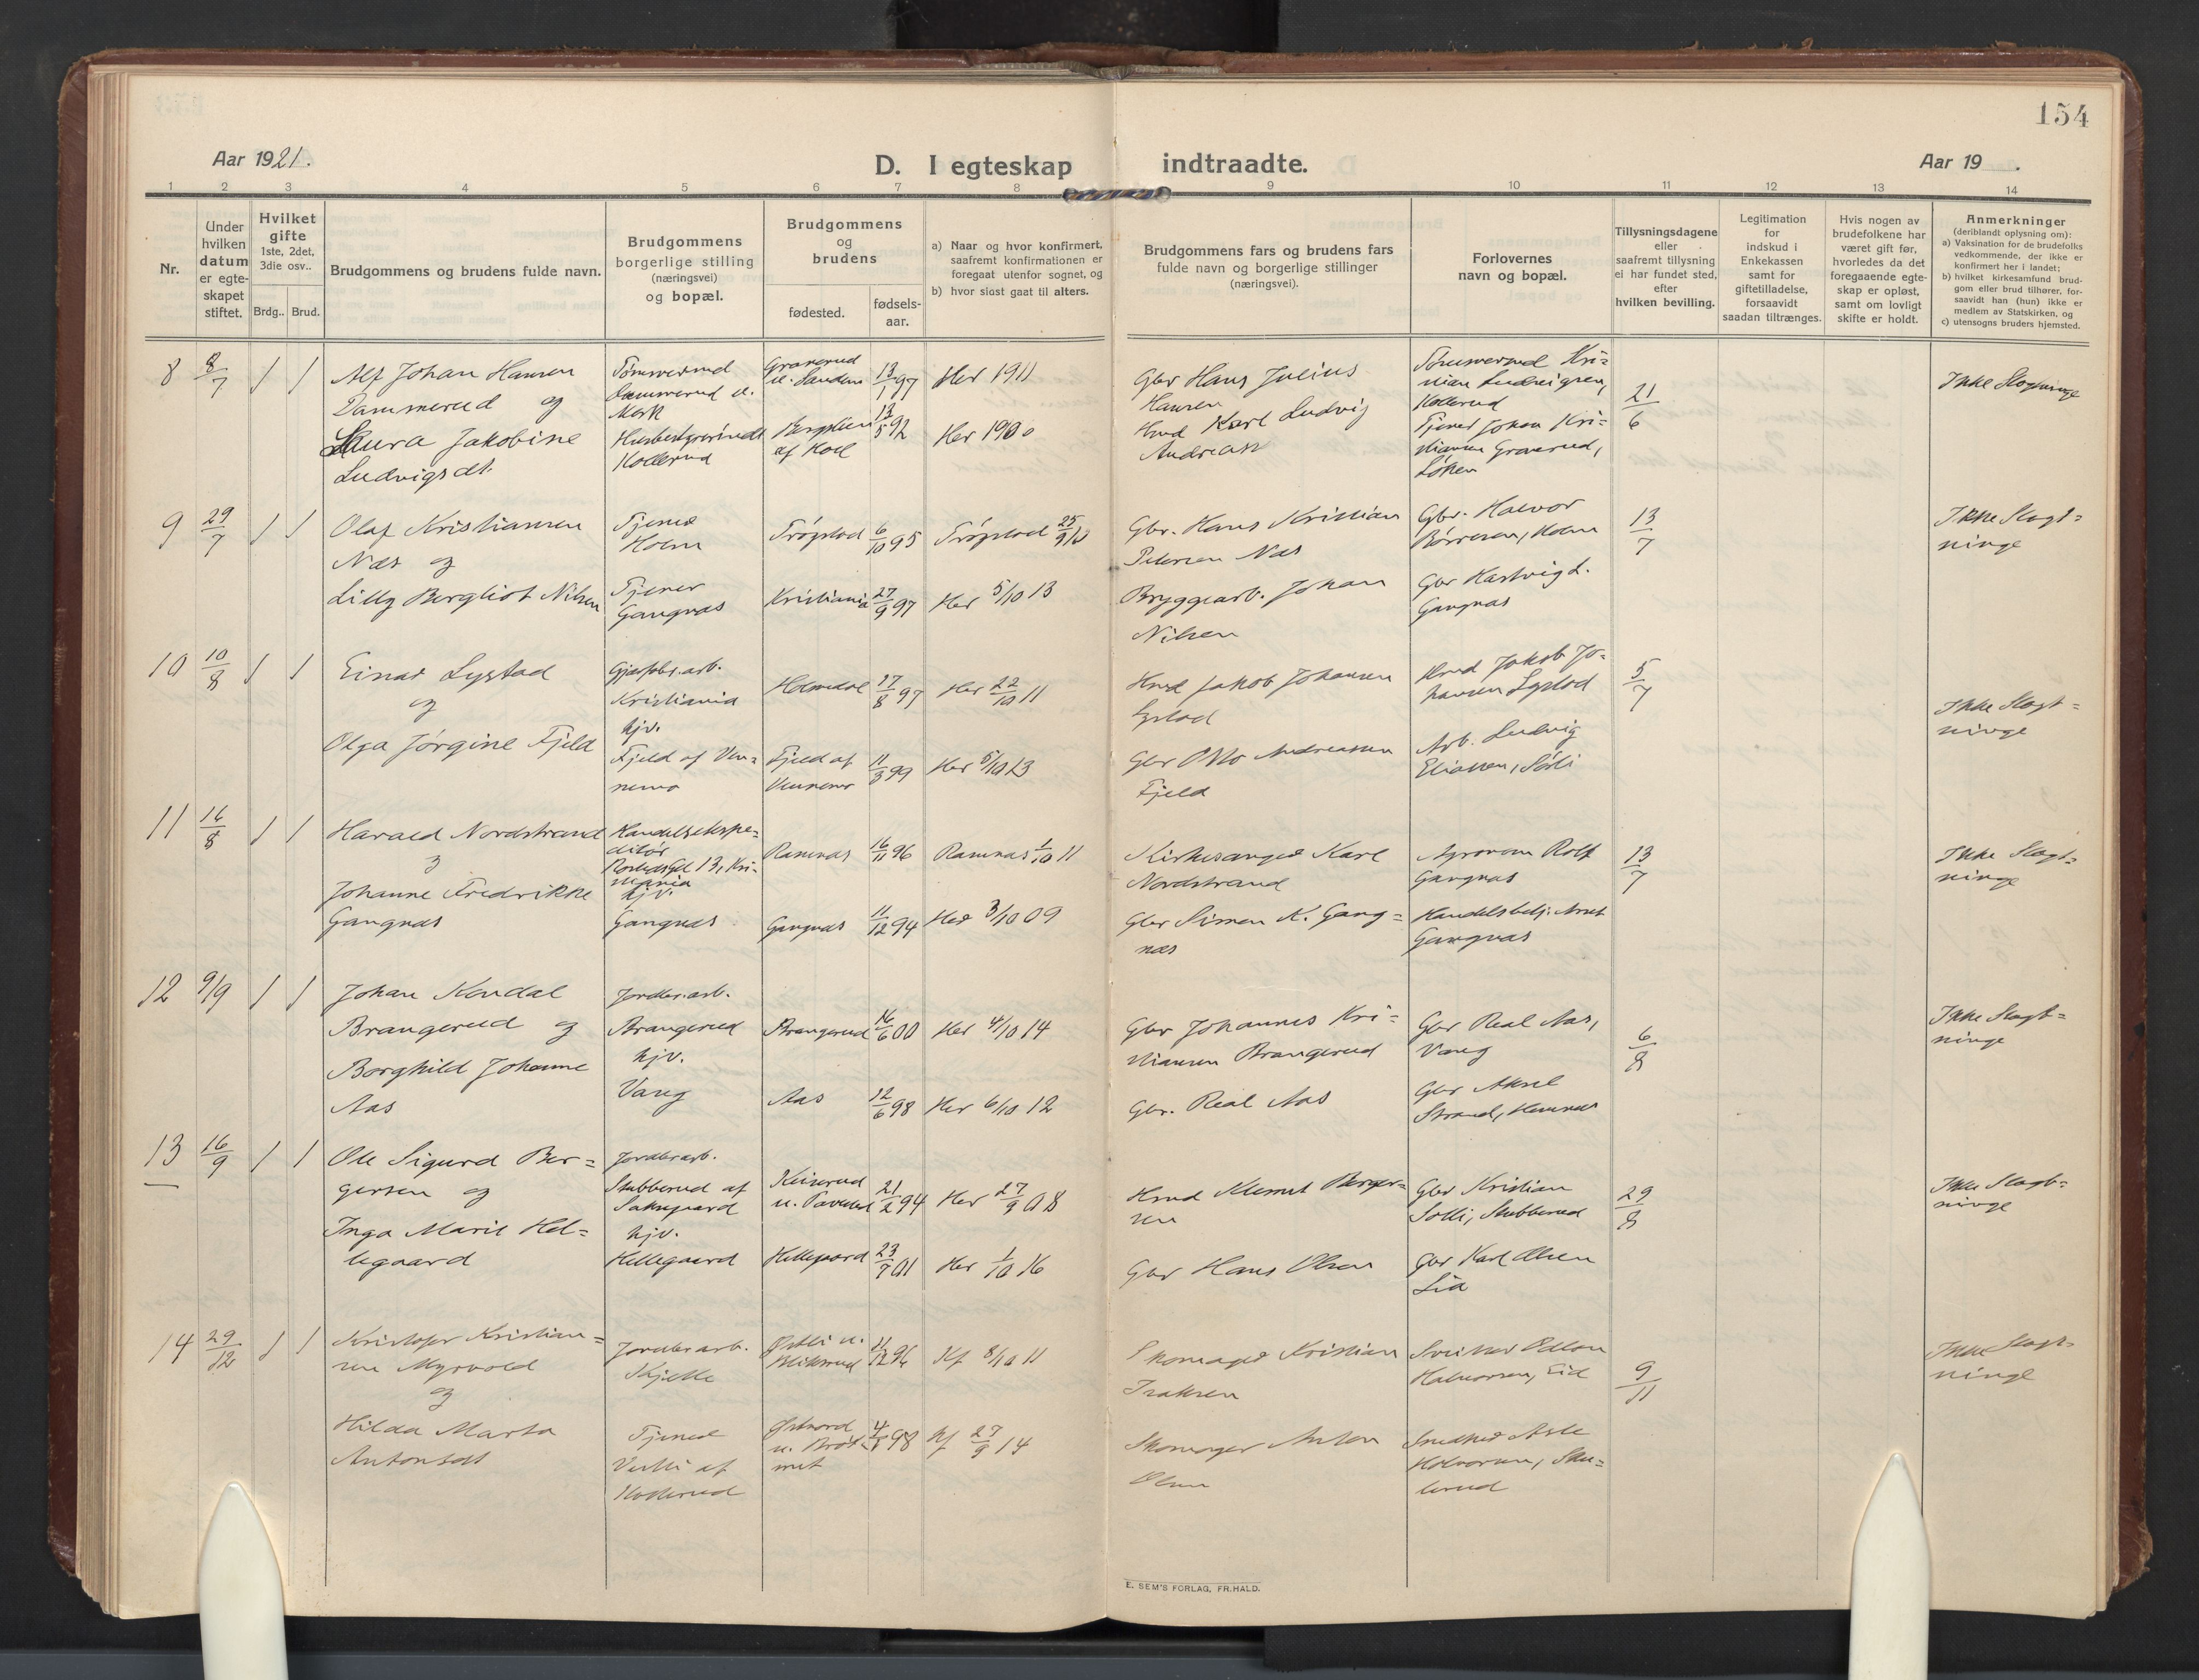 154
Aar 1921.
D. I egteskap indtraadte.
Aar 19 .
1 2 3 4 5 6 7 8 9 10 11 12 13 14
Nr.
Under
hvilken
datum
er egte-
skapet
stiftet.
Hvilket
gifte
1ste, 2det,
3die osv..
Brdg.. Brud.
Brudgommens og brudens fulde navn.
Brudgommens
borgerlige stilling
(næringsvei)
og bopæl.
Brudgommens
og
brudens
fødested.
fødsels-
aar.
a) Naar og hvor konfirmert,
saafremt konfirmationen er
foregaat utenfor sognet, og
b) hvor sidst gaat til alters.
Brudgommens fars og brudens fars
fulde navn og borgerlige stillinger
(næringsvei).
Forlovernes
navn og bopæl.
Tillysningsdagene
eller
saafremt tillysning
ei har fundet sted,
efter
hvilken bevilling.
Legitimation
for
indskud i
Enkekassen
samt for
giftetilladelse,
forsaavidt
saadan tiltrænges.
Hvis nogen av
brudefolkene har
været gift før,
hvorledes da det
foregaaende egte-
skap er opløst,
samt om lovligt
skifte er holdt.
Anmerkninger
(deriblandt oplysning om):
a) Vaksination for de brudefolks
vedkommende, der ikke er
konfirmert her i landet;
b) hvilket kirkesamfund brud-
gom eller brud tilhører, for-
saavidt han (hun) ikke er
medlem av Statskirken, og
c) utensogns bruders hjemsted.
8 8/7 1 1
Alf Johan Hansen
Dammerud og
Laura Jakobine
Ludvigsdt.
Dammerud u.
Mørk
Kollerud
Graverud
13/1 97
13/5 92
Her 1911
Her 1900
Gbr Hans Julius
Hansen
Hmd Karl Ludvig
Andreass
Kollerud
Tjener Johan Kri-
stiansen Graverud,
Løken
21/6
Ikke Slegtninge
9 29/7 1 1
Olaf Kristiansen
Næs og
Lilly Bergliot Nilsen
Tjener
Holm
Tjener
Gangnæs
Trøgstad 6/10 95
Kristiania 27/9 97
Trøgstad 25/9 10
Her 5/10 13
Gbr. Hans Kristian
Petersen Næs
Bryggearb. Johan
Nilsen
Gbr. Halvor
Børresen, Holm
Gbr Hartvig L.
Gangnæs
13/7
Ikke Slegt=
ninge
10 10/8 1 1
Einar Lystad
og
Olga Jørgine Fjeld
Kristiania
hjv.
Fjeld af Ven-
nemo
Holmedal 17/8 97
Fjeld af
Vennemo
11/3 99
Her 22/10 11
Her 5/10 13
Hmd Jakob Johansen
Lystad
Gbr Otto Andreassen
Fjeld
Hmd Jakob Jo-
hansen Lystad
Arb. Ludvig
Eliassen, Sørli
5/7
Ikke Slegt=
ninge
11 16/8 1 1
Harald Nordstrand
og
Johanne Fredrikke
Gangnæs
Handelsekspe=
ditør
13, Kri-
stiania
hjv.
Gangnæs
Ramnæs 16/11 96
Gangnæs 11/12 94
Ramnæs 1/10 11
Her 3/10 09
Kirkesanger Karl
Nordstrand
Gbr Simen K. Gang=
næs
Agronom Rolf
Gangnæs
Handelsbetj. Arnt
Gangnæs
13/7
Ikke Slegt=
ninge
12 9/9 1 1
Johan Kondal
Brangerud og
Borghild Johanne
Aas
Jordbr.arb.
Brangerud
hjv.
Vang
Brangerud 16/6 00
Aas 12/6 98
Her 4/10 14
Her 6/10 12
Gbr Johannes Kri=
stiansen Brangerud
Gbr. Real Aas
Gbr Real Aas,
Vang
Gbr Aksel
Strand, Hemnes
6/8
Ikke Slegt=
ninge
13 16/9 1 1
Ole Sigurd Ber=
gersen og
Inga Marie Hel=
legaard
Jordbr.arb.
Stubberud af
hjv.
Hellegaard
21/2 94
Hellegaard 23/7 01
Her 27/9 08
Her 1/10 16
Hmd Klemet Berger=
sen
Gbr Hans Olsen
Gbr Kristian
Solli, Stubberud
Gbr Karl Olsen
Lia
29/8
Ikke Slegt=
ninge
14 29/12 1 1
Kristofer Kristian=
sen Myrvold
og
Hilda Marta
Antonsdt
Jordbr.arb.
Skjelle
Tjener
Kollerud
11/12 96
4/8 98
Kf 8/10 11
Kf 27/9 14
Skomager Kristian
Isaksen
Skomager Anton
Olsen
Halvorsen, Eid
Snedker Asle
Halvorsen, Sku=
lerud
9/11
Ikke Slegt=
ninge
E. SEM'S FORLAG, FR.HALD.